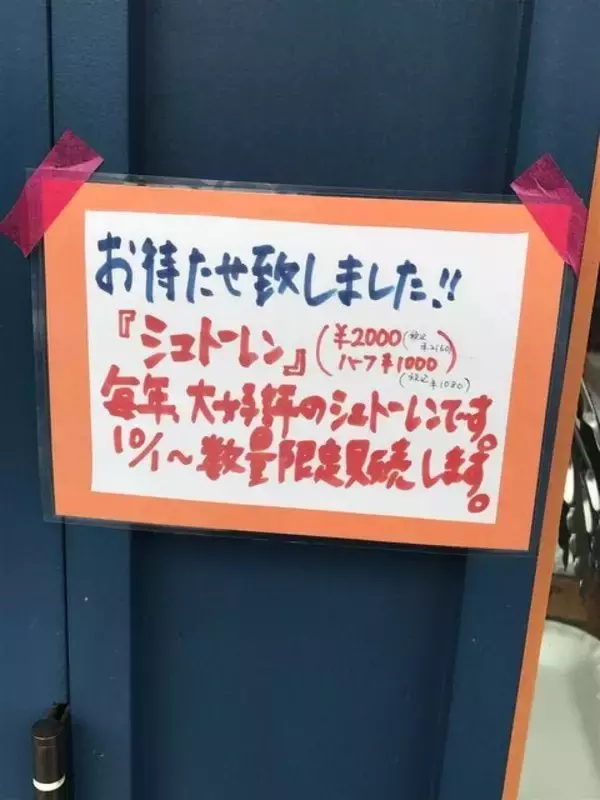 お待たせ致しました!!
『シュトーレン』(¥2000(税込¥2160)
ハーフ¥1000)
(税込¥1080)
毎年、大好評のシュトーレンです。
10/1〜数量限定販売します。